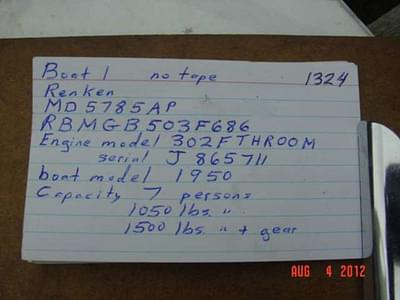 Boat 1 no tape 1324
Renken
MD5785AP
RBMGB503F686
Engine model 302FTHROOM
serial J865711
boat model 1950
Capacity 7 persons
1050 lbs. "
1500 lbs. " + gear
AUG 4 2012